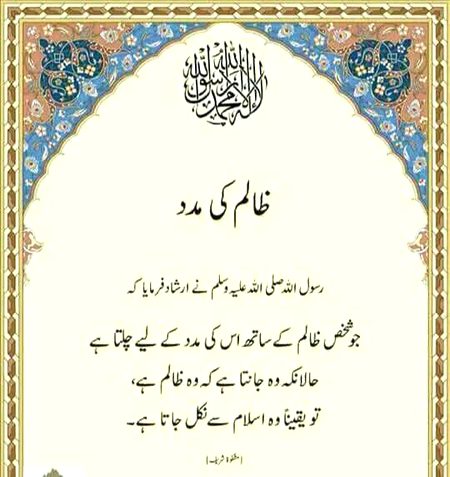 لا إله إلا الله محمد رسول الله
ظالم کی مدد
رسول اللہ صلی اللہ علیہ وسلم نے ارشاد فرمایا کہ
جو شخص ظالم کے ساتھ اس کی مدد کے لیے چلتا ہے
حالانکہ وہ جانتا ہے کہ وہ ظالم ہے،
تو یقیناً وہ اسلام سے نکل جاتا ہے۔
(مشکوٰۃ شریف)